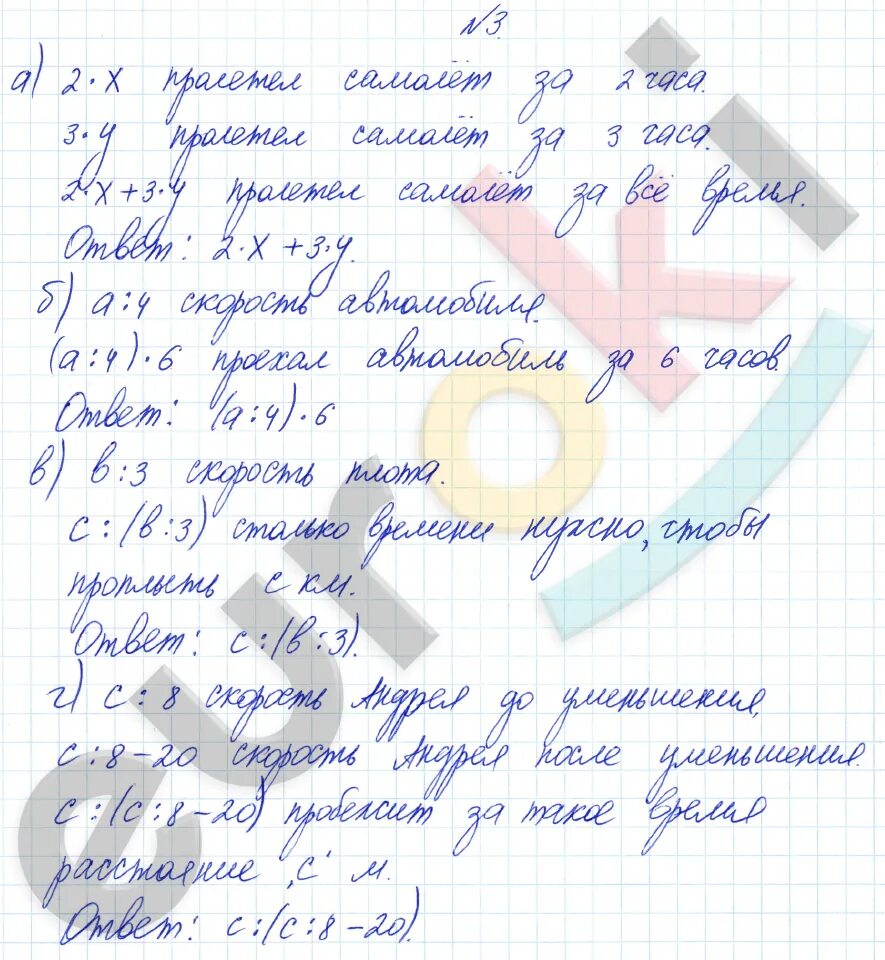 №3.
а) 2·x пролетел самолёт за 2 часа.
3·y пролетел самолёт за 3 часа.
2·x+3·y пролетел самолёт за всё время.
Ответ: 2·x+3·y.
б) a:4 скорость автомобиля.
(a:4)·6 проехал автомобиль за 6 часов.
Ответ: (a:4)·6
в) в:3 скорость плота.
с:(в:3) столько времени нужно, чтобы
проплыть с км.
Ответ: с:(в:3).
г) с:8 скорость Андрея до уменьшения,
с:8-20 скорость Андрея после уменьшения.
с:(с:8-20) пробежит за такое время
расстояние „с‘ м.
Ответ: с:(с:8-20).
euroki